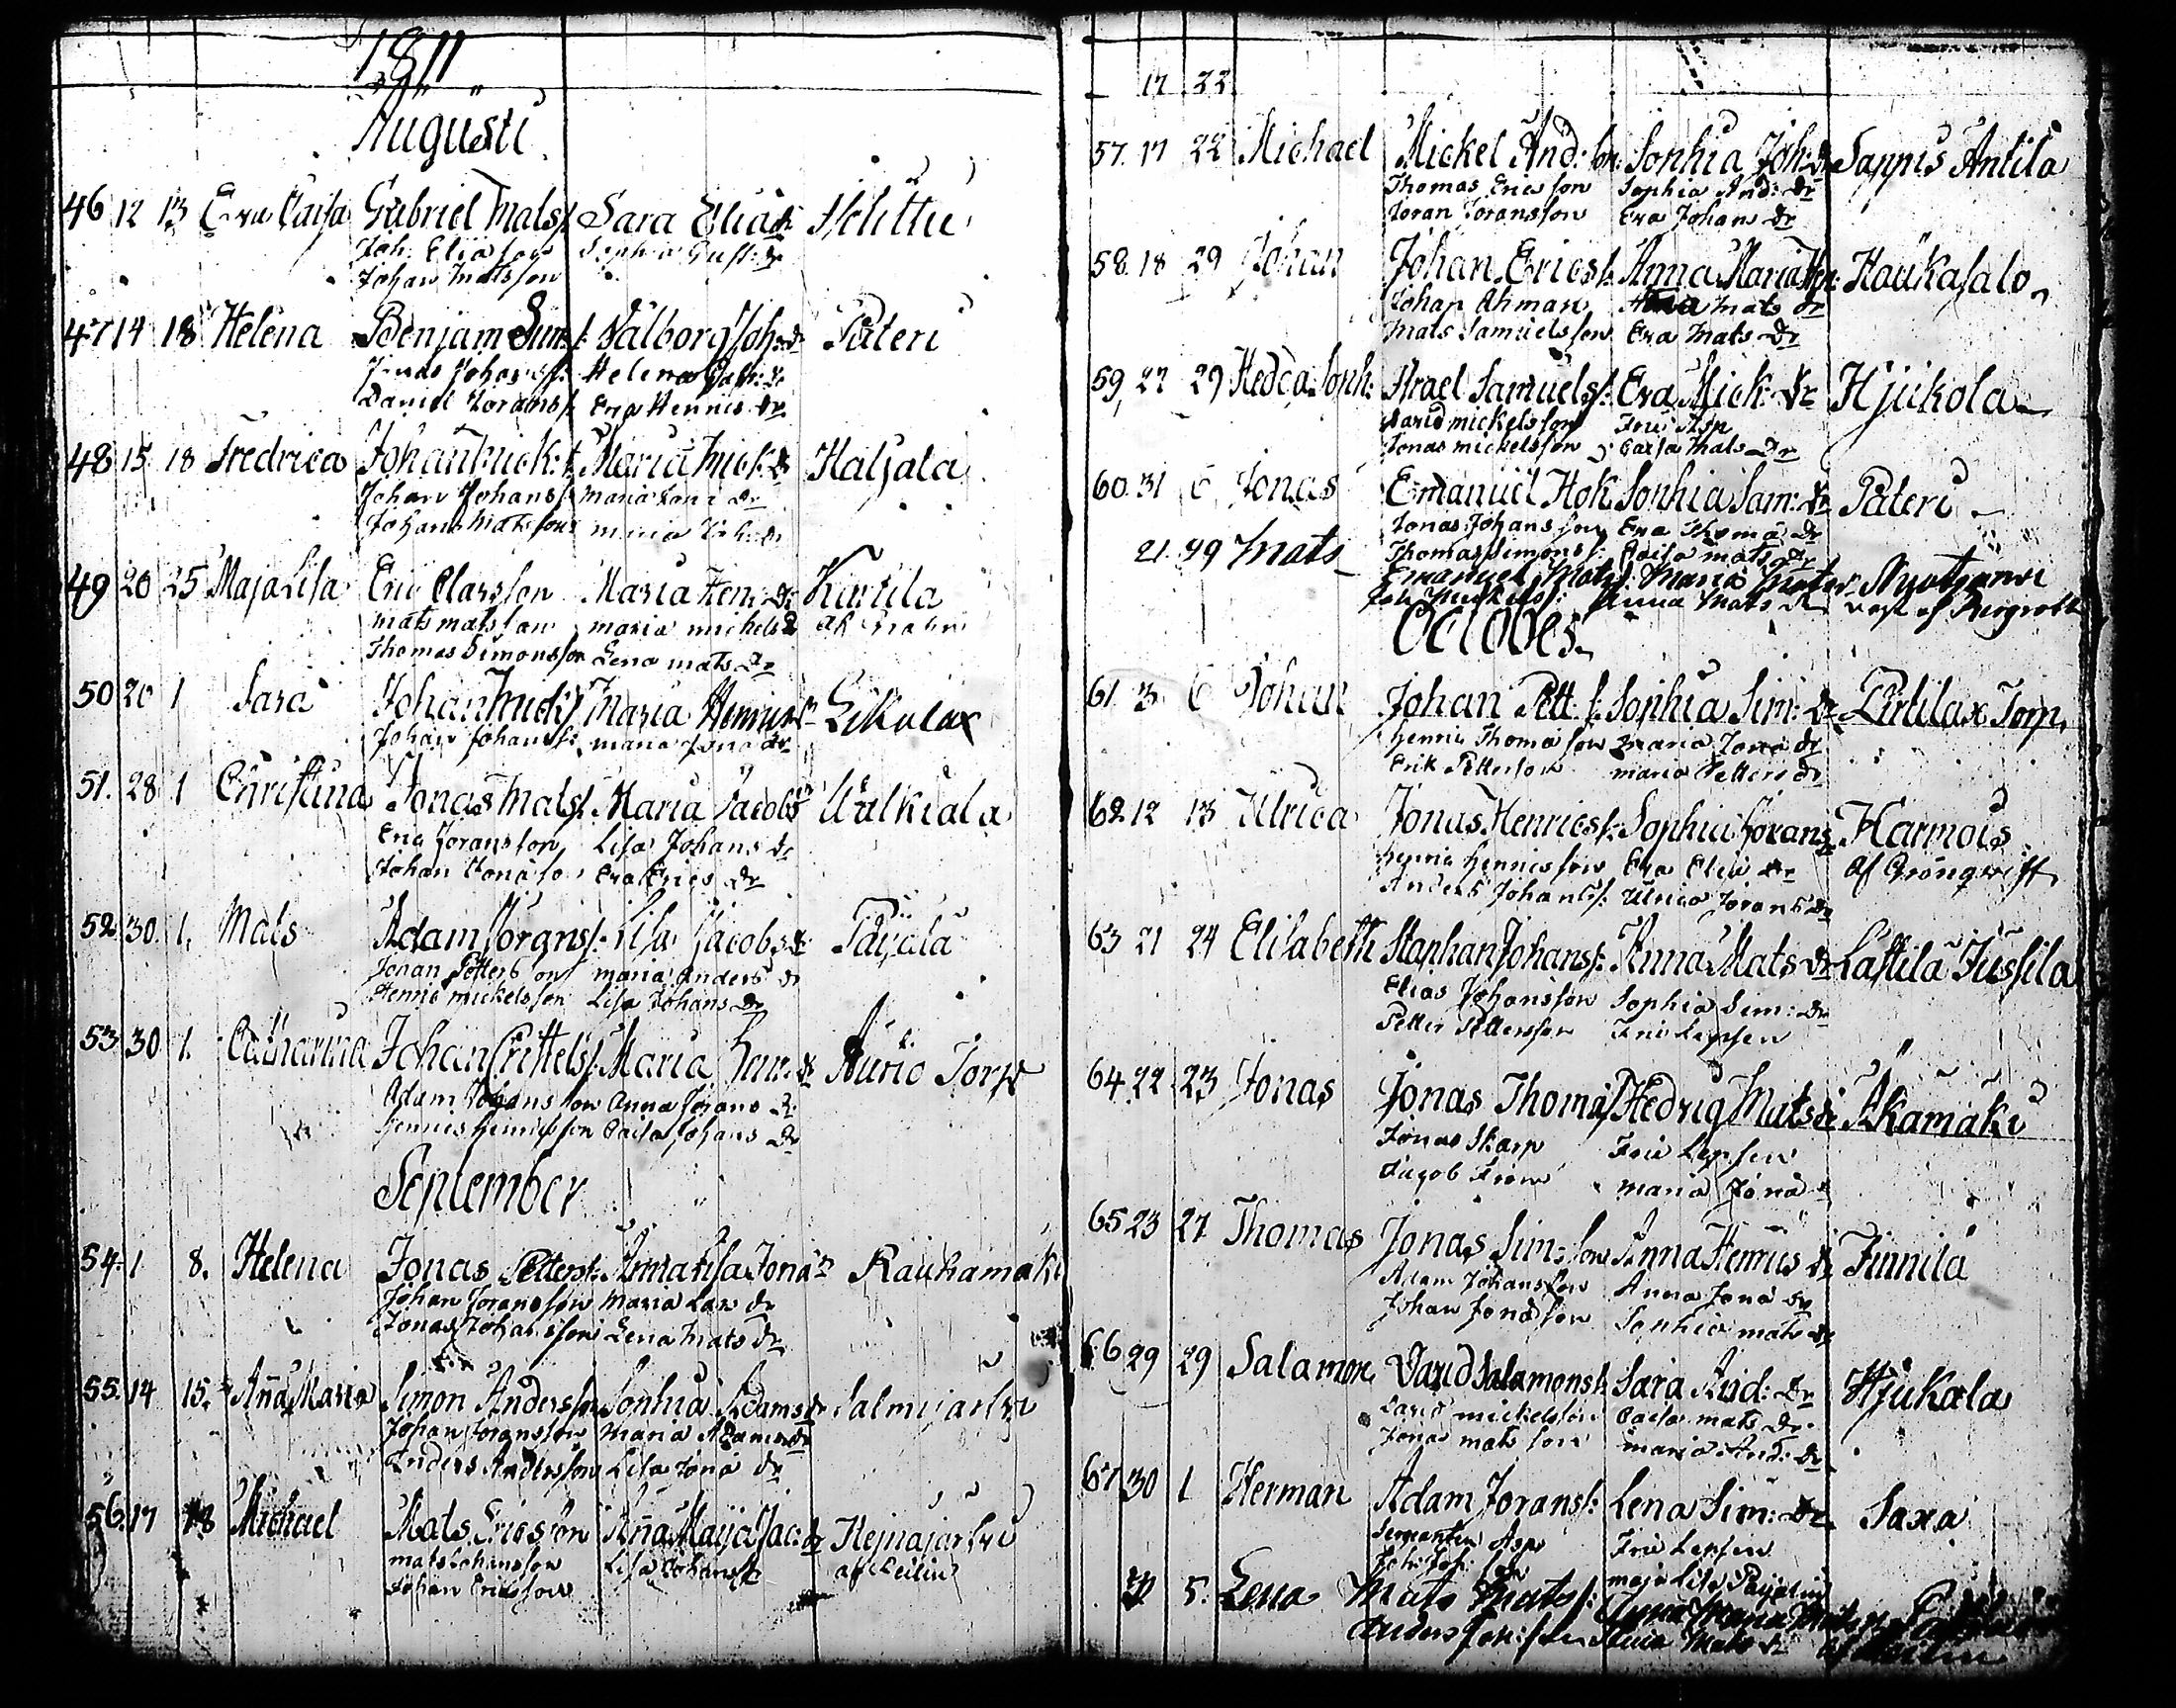 1811
Augusti
46 12 13 Eva Caisa Gabriel Mats s: Sara Elia dr Hiittu
Joh: Eliasson Sophia Gust: dr
Johan Matsson
47 14 18 Helena Benjam Sim s: Valborg Joh: dr Päteri
Jonas Johans s: Helena dr
Daniel Jörans s: Eva Henrics dr
48 15 18 Fredrica Johan Mick: s: Maria Mick: dr Haljala
Johan Johans s: Maria Jona dr
Johan Matsson Maria Joh: dr
49 20 25 Maja Lisa Eric Classon Maria Hen: dr Kartila
Mats Matsson Maria Michels dr af
Thomas Simonsson Lena Mats dr
50 20 1 Sara Johan Mick s: Maria Henrics dr
Johan Johans s: Maria Jona dr
51. 28 1 Christina Jonas Mats s: Maria Jacobs dr Walkiala
Eric Joransson Lisa Johans dr
Johan Jonasson Eva Erics dr
52. 30. 1. Mats Adam Jörans s: Lisa Jacobs dr Päijälä
Johan Pettersson Maria Anders dr
Henric Mickelsson Lisa Johans dr
53 30 1. Catharina Johan Cristels s: Maria Hen: dr Aurio Torp
Adam Johansson Anna Jörans dr
Hennric Henricsson Caisa Johans dr
September
54. 1 8. Helena Jonas Petters s: Anna Lisa Jona dr Raukamaki
Johan Joransson Maria Lars dr
Jonas Johansson Lena Mats dr
55. 14 15. Aña Maria Simon Andersson Sophia Adams dr Salmijarfvi
Johan Joransson Maria Adams dr
Anders Andersson Lisa Jona dr
56. 17 18 Michael Mats Ericsson Aña Maija Jac: dr Heinajarfvi
Mats Johansson Lisa Johans dr af Ceilin
Johan Ericsson
17 22
57. 17 22 Michael Mickel And: son Sophia Joh: dr Sappis Antila
Thomas Ericsson Sophia And: dr
Joran Joransson Eva Johan dr
58. 18 29 Johan Johan Erics s: Anna Maria Haukasalo
Johan Öhman Mats dr
Mats Samuelsson Eva Mats dr
59, 27 29 Hedca Soph: Israel Samuels s: Eva Mick: dr Hjukola
David Mickelsson Fru Asp
Jonas Mickelsson Caisa Mats dr
60. 31 6 Jonas Emanuel Hok Sophia Sam: dr Päteri
Jonas Johansson Eva Thoma dr
Thomas Simons s: Caisa Mats dr
21 29 Mats Emanuel Mats s: Maria Mats dr
Joh: Mickels s: Anna Mats dr
October
61. 3. 6 Johan Johan Pett: s: Sophia Sim: dr Pertilax Torp.
Henric Thomasson Maria Jona dr
Erik Petterson Maria Petters dr
62. 12 13 Ulrica Jonas Henrics s: Sophia Jorans dr Harmois
Henric Henricsson Eva Elia dr af Grönqwist
Anders Johans s: Ulrica Jorans dr
63 21 24 Elisabeth Staphan Johans s: Anna Mats dr Lastila Jussila
Elias Johansson Sophia Sim: dr
Petter Pettersson Fru Lepsen
64. 22 23 Jonas Jonas Thomas s: Hedvig Mats dr Akamaki
Jonas Skarp Fru Lepsen
Jacob Maria Jona dr
65 23 27 Thomas Jonas Sim: son Anna Henrics dr Finnila
Adam Johansson Anna Jona dr
Johan Jonasson Sophia Mats dr
66 29 29 Salamon David Salamons s: Sara And: dr Hjukala
David Mickelsson Caisa Mats dr
Jonas Matsson Maria And: dr
67 30 1 Herman Adam Jorans s: Lena Sim: dr. Saxa
Asp Fru Lepsen
Joh: Joh: son Maja Lisa
5. Lena Mats Mats s: Anna Maria Mats dr
Anders Joh: son Mats dr